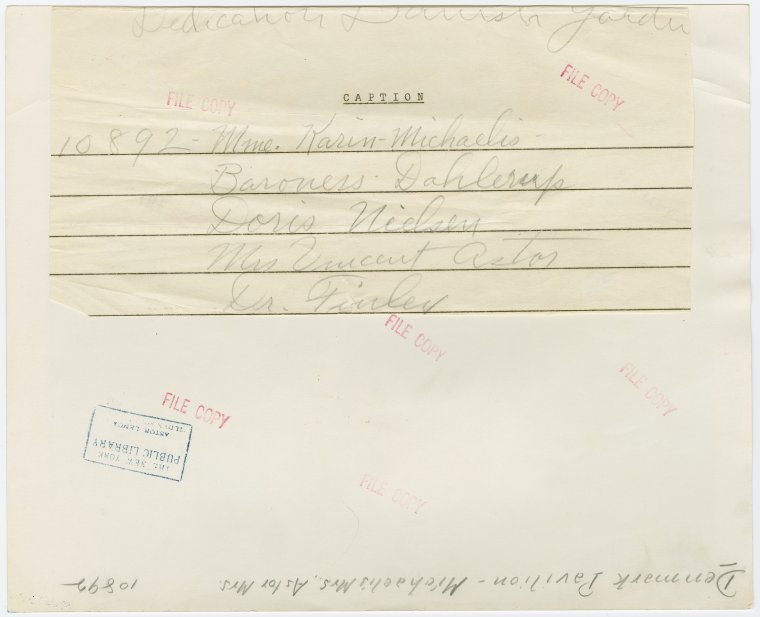 Dedication Danish Garden
FILE COPY
FILE COPY
CAPTION
10892- Mme. Karin-Michaelis-
Baroness Dahlerup
Doris Nielsen
Mrs Vincent Astor
Dr. Finley
FILE COPY
FILE COPY
FILE COPY
THE NEW YORK
PUBLIC LIBRARY
ASTOR LENOX
FILE COPY
Denmark Pavilion - Michaelis Mrs., Astor Mrs. 10892